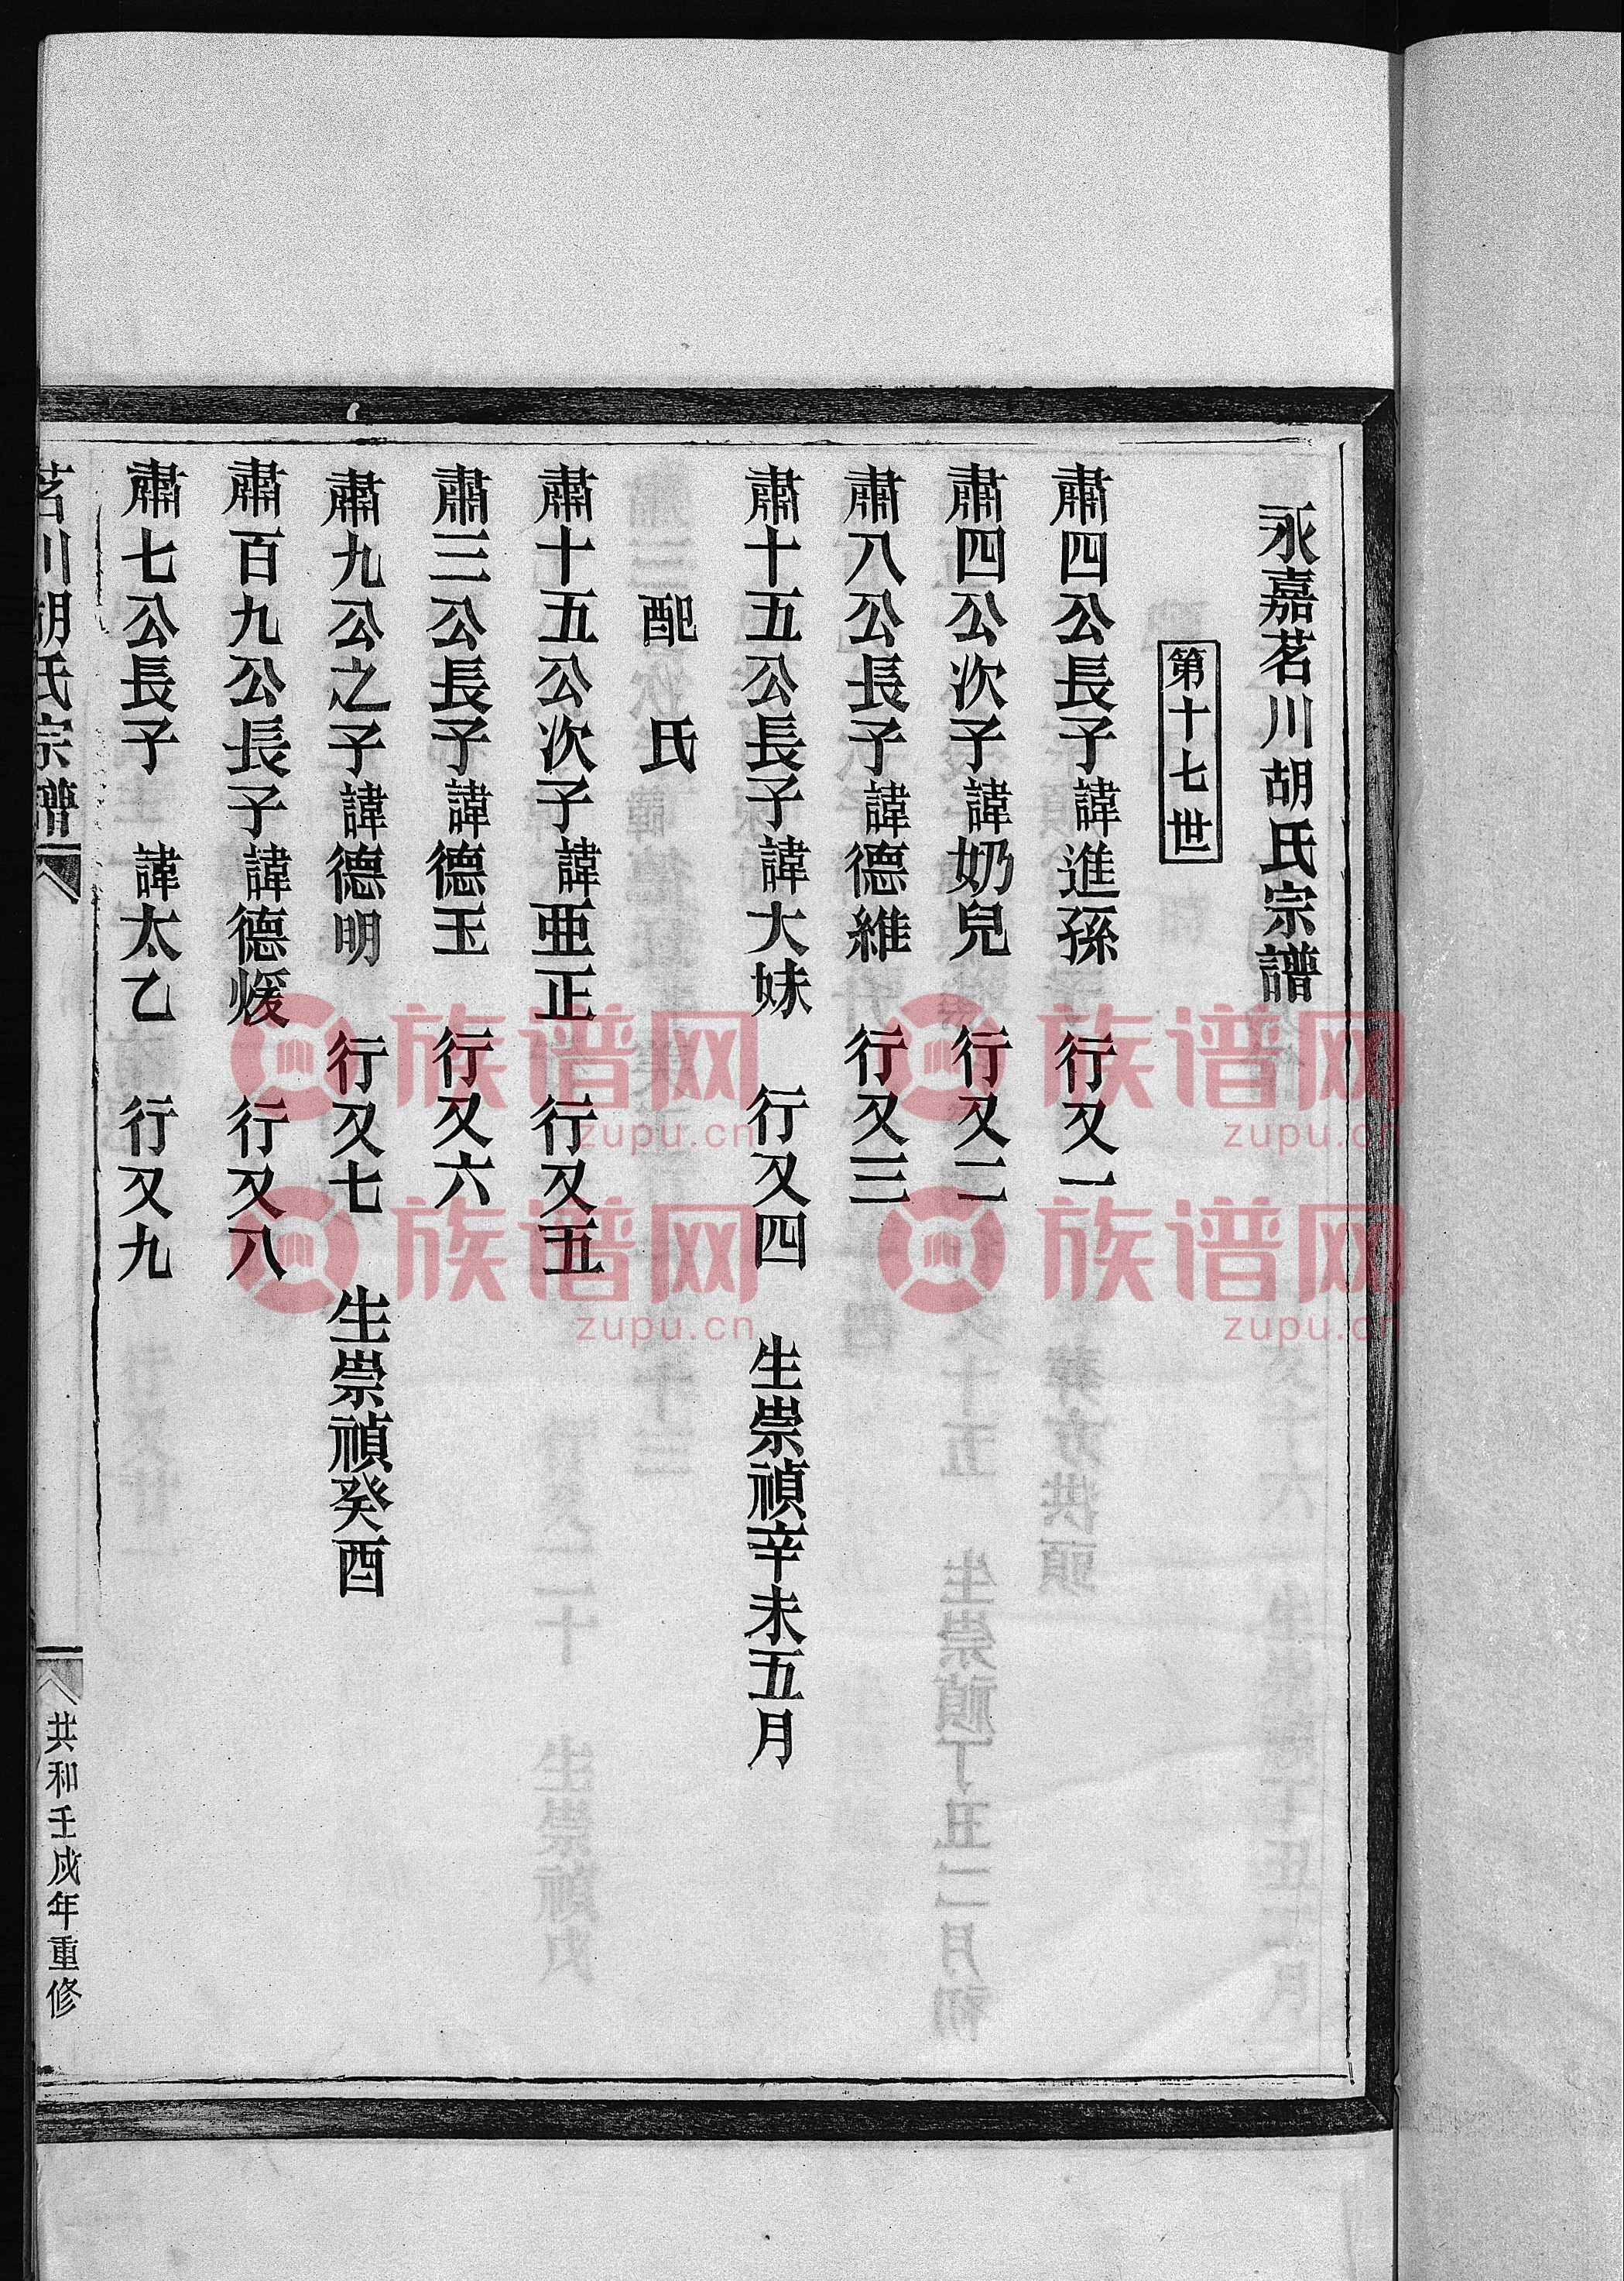 永嘉茗川胡氏宗譜
第十七世
肅四公長子諱進孫 行又一
肅四公次子諱奶兒 行又二
肅八公長子諱德維 行又三
肅十五公長子諱大妹 行又四 生崇禎辛未五月
配 氏
肅十五公次子諱亜正 行又五
肅三公長子諱德玉 行又六
肅九公之子諱德明 行又七 生崇禎癸酉
肅百九公長子諱德煖 行又八
肅七公長子 諱太乙 行又九
茗川胡氏宗譜
共和壬戌年重修
族谱网
zupu.cn
族谱网
zupu.cn
族谱网
zupu.cn
族谱网
zupu.cn